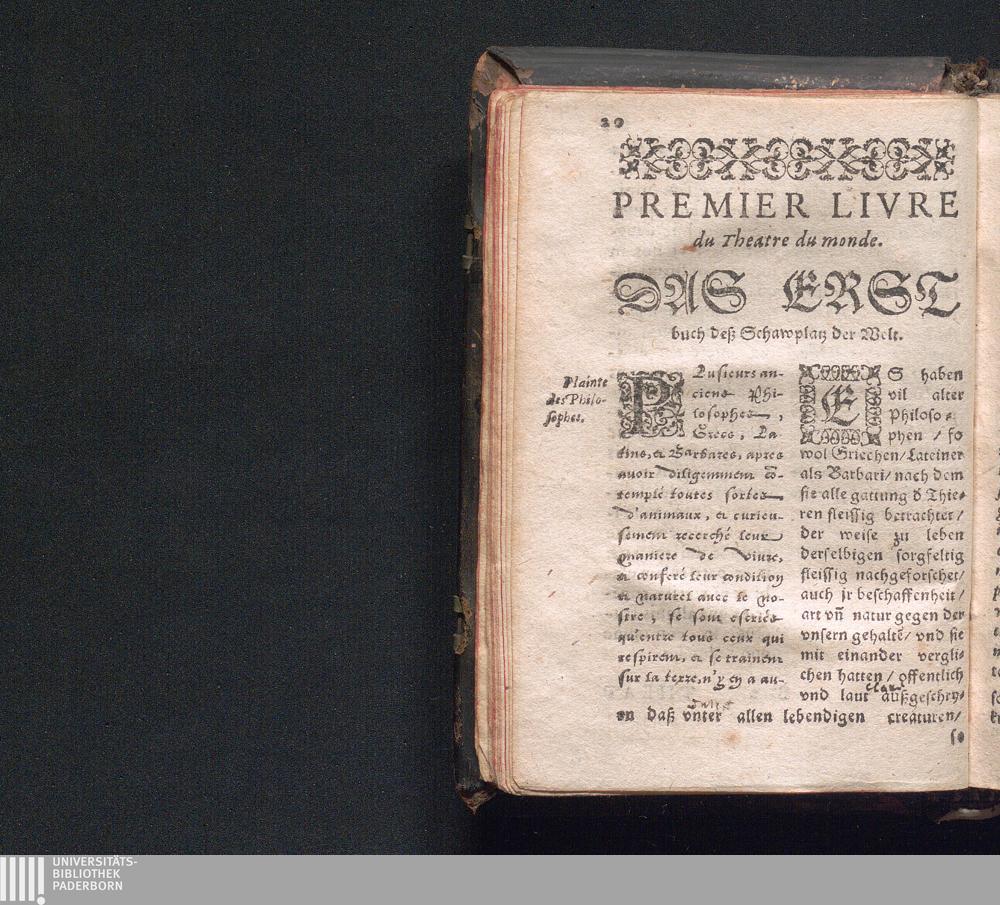 20
PREMIER LIVRE
du Theatre du monde.
DAS ERST
buch deß Schawplatz der Welt.
Plainte
des Philo-
sophes.
PLusieurs an-
ciens Phi-
losophes,
Grecs, La-
tins, & Barbares, apres
auoir diligemment cõ-
templé toutes sortes
d'animaux, & curieu-
sement recerché leur
maniere de viure,
& conferé leur condition
& naturel auec le no-
stre, se sont escriés
qu'entre tous ceux qui
respirent, & se trainent
sur la terre, n'y en a au-
ES haben
vil alter
Philoso-
phen / so
wol Griechen/ Lateiner
als Barbari/ nach dem
sie alle gattung d Thie-
ren fleissig betrachtet/
der weise zu leben
derselbigen sorgfeltig
fleissig nachgeforschet/
auch jr beschaffenheit/
art vñ natur gegen der
vnsern gehaltẽ/ vnd sie
mit einander vergli-
chen hatten / offentlich
vnd laut außgeschry-
en daß vnter allen lebendigen creaturen/
so
UNIVERSITÄTS-
BIBLIOTHEK
PADERBORN